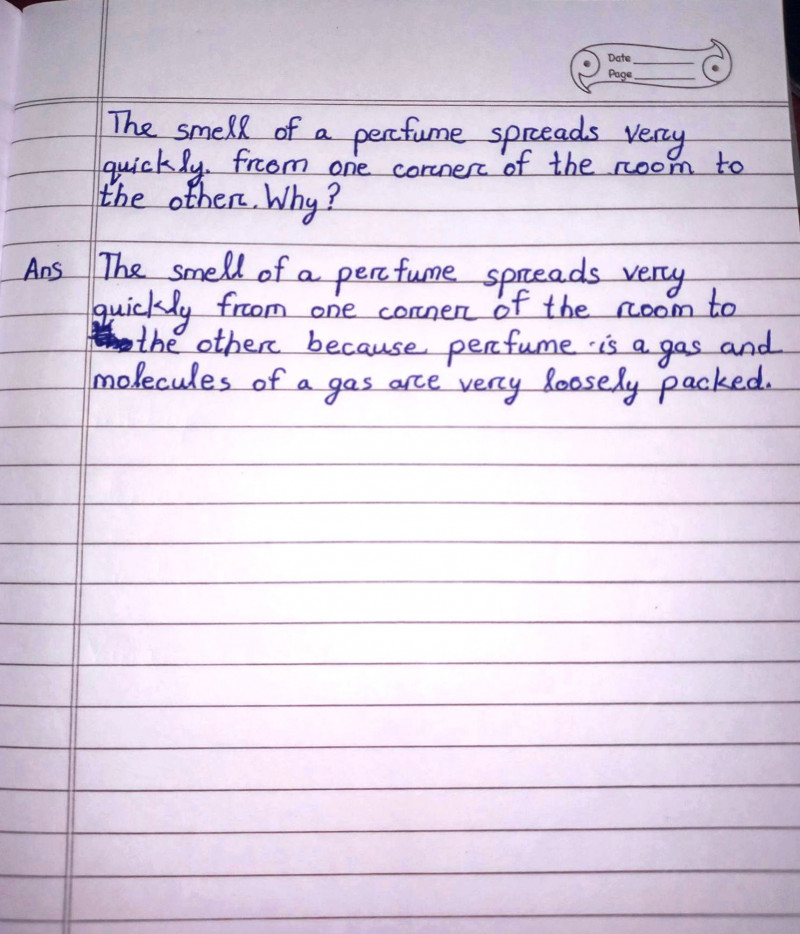 Date
Page
The smell of a perfume spreads very
quickly. from one corner of the room to
the other. Why?
Ans The smell of a perfume spreads very
quickly from one corner of the room to
the other because perfume is a gas and
molecules of a gas are very loosely packed.